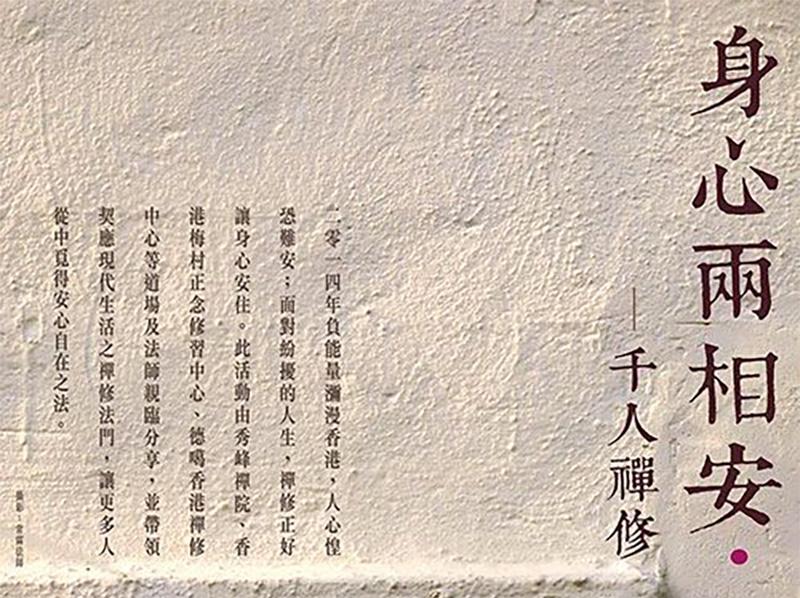 身心兩相安•
——千人禪修
二零一四年負能量瀰漫香港，人心惶
恐難安；面對紛擾的人生，禪修正好
讓身心安住。此活動由秀峰禪院、香
港梅村正念修習中心、德噶香港禪修
中心等道場及法師親臨分享，並帶領
契應現代生活之禪修法門，讓更多人
從中覓得安心自在之法。
攝影：常霖法師